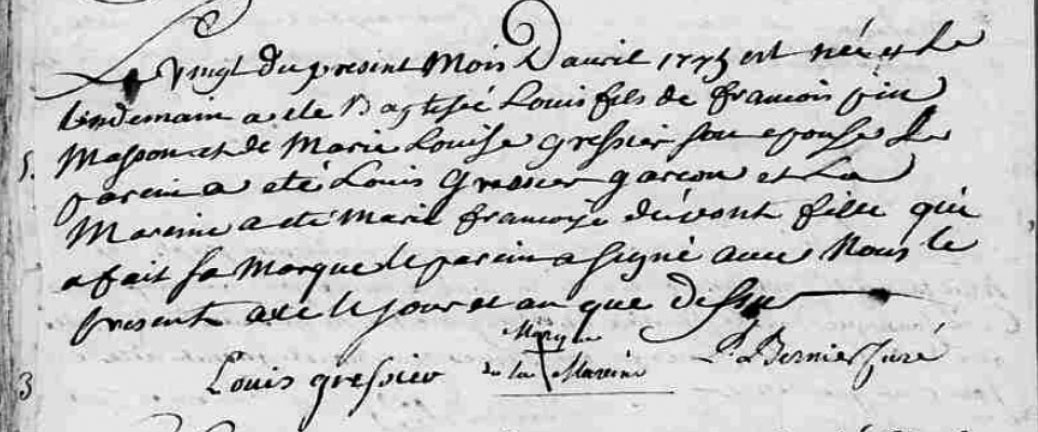 Le vingt du present Mois Davril 1775 est née et le
lendemain a ete Baptisé Louis fils de francois
Masson et de Marie Louise gressier son epouse Le
parein a eté Louis Gressier garcon et La
Mareine a eté Marie francoise devont fille qui
a fait sa Marque le parein a signé avec Nous le
present acte le jour et an que Dessus
Marque
Louis gressier de la Mareine P. Bernier Curé
5.
3